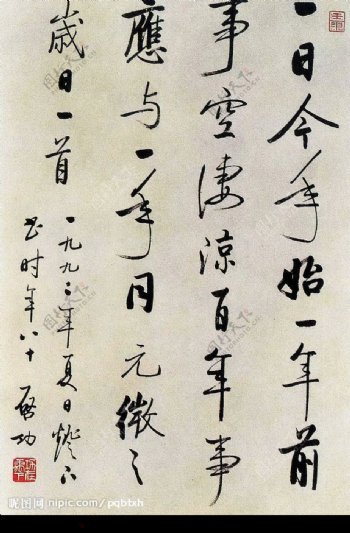 一日今年始一年前
事空凄涼百年事
應与一年同元微之
歲日一首
一九九二年夏日燈下
书时年八十 启功
昵图网 nipic.com/pqbbxh